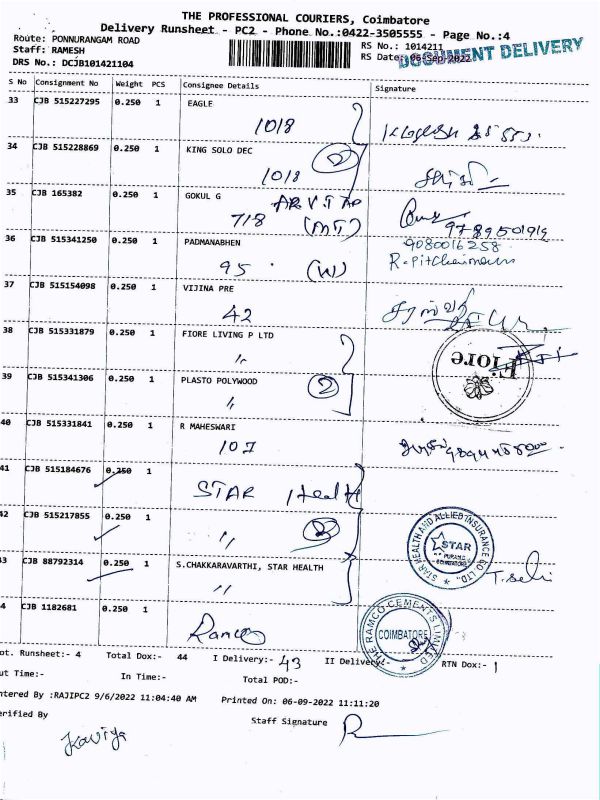 THE PROFESSIONAL COURIERS, Coimbatore
Delivery Runsheet - PC2 - Phone No.:0422-3505555 - Page No.:4
Route: PONNURANGAM ROAD
RS No.: 1014211
Staff: RAMESH
RS Date: 06-Sep-2022
DOCUMENT DELIVERY
DRS No.: DCJB101421104
S No Consignment No Weight PCS Consignee Details Signature
33 CJB 515227295 0.250 1 EAGLE
1018
34 CJB 515228869 0.250 1 KING SOLO DEC
2
1018
35 CJB 165382 0.250 1 GOKUL G
718 (MT)
9789501919
36 CJB 515341250 0.250 1 PADMANABHEN
9080016258
95 (W)
37 CJB 515154098 0.250 1 VIJINA PRE
42
38 CJB 515331879 0.250 1 FIORE LIVING P LTD
〃
Fiore
39 CJB 515341306 0.250 1 PLASTO POLYWOOD
2
〃
40 CJB 515331841 0.250 1 R MAHESWARI
107
41 CJB 515184676 0.250 1
STAR Health
42 CJB 515217855 0.250 1
〃
STAR HEALTH AND ALLIED INSURANCE CO LTD.
STAR
43 CJB 88792314 0.250 1 S.CHAKKARAVARTHI, STAR HEALTH
〃
T. Selvi
4 CJB 1182681 0.250 1
Ramco
THE RAMCO CEMENTS LIMITED
COIMBATORE
ot. Runsheet:- 4 Total Dox:- 44 I Delivery:- 43 II Delivery:- RTN Dox:- 1
ut Time:- In Time:- Total POD:-
ntered By :RAJIPC2 9/6/2022 11:04:40 AM Printed On: 06-09-2022 11:11:20
erified By Staff Signature
Kaviya